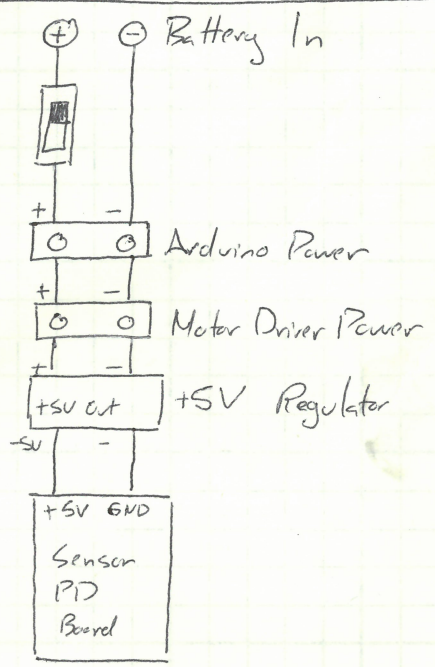 + - Battery In
+ -
Arduino Power
+ -
Motor Driver Power
+ -
+5V Out +5V Regulator
+5V -
+5V GND
Sensor
PD
Board